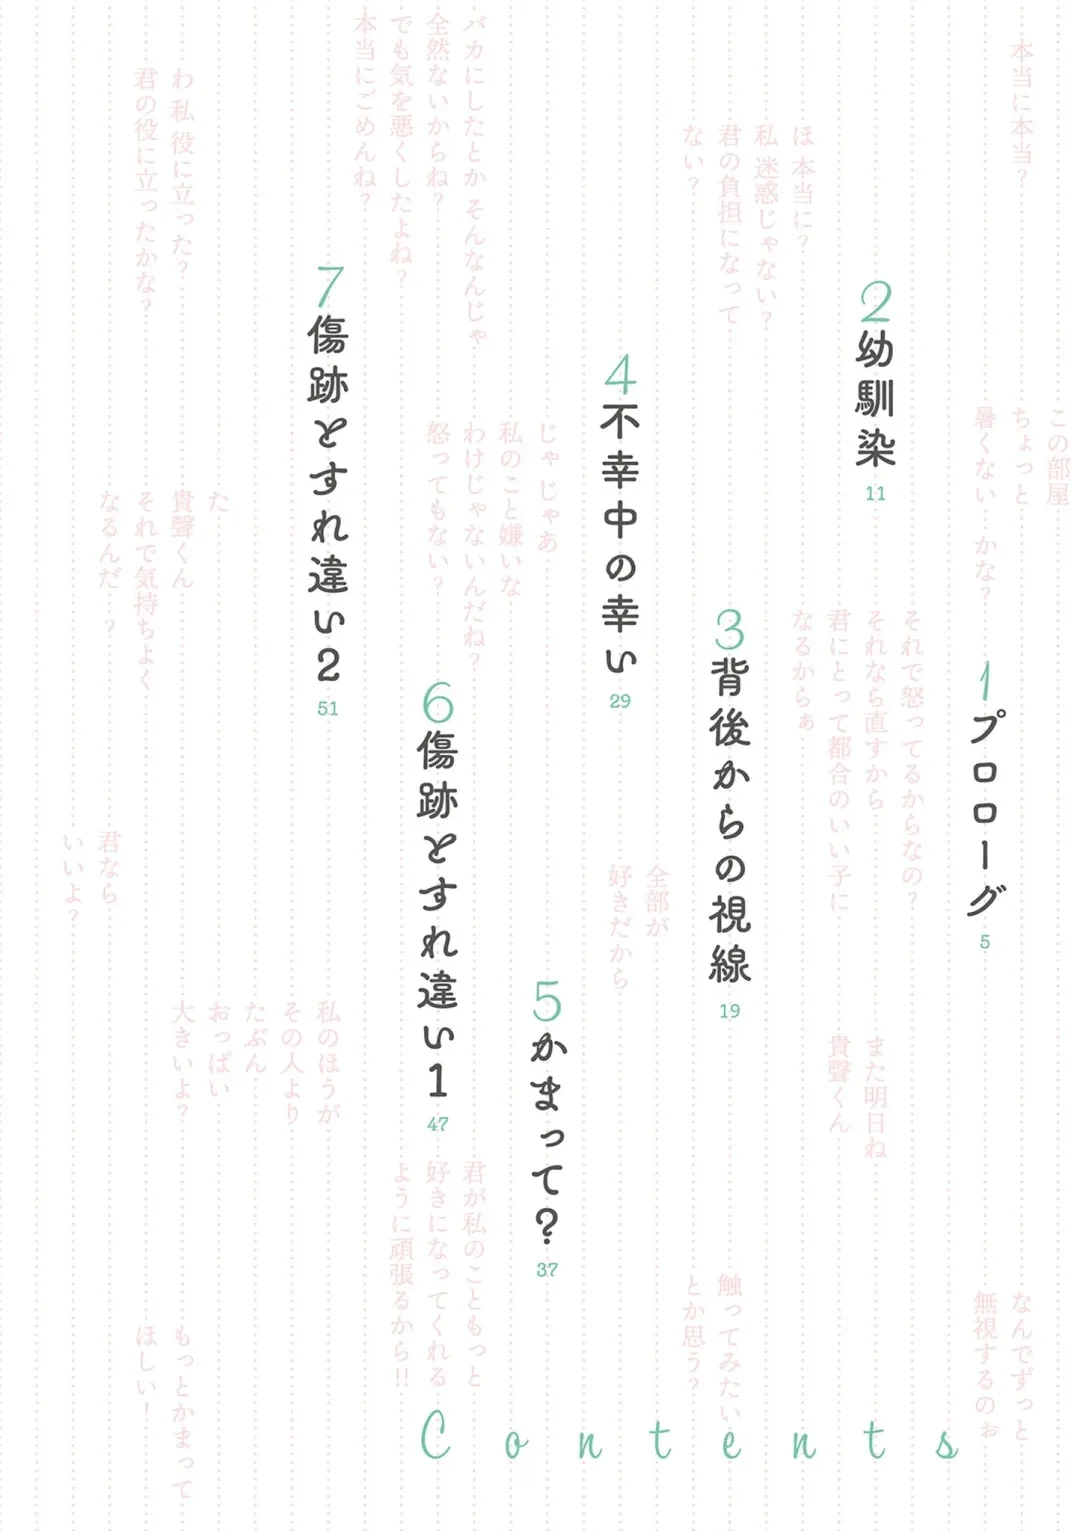 本当に本当?
この部屋
ちょっと
暑くない かな?
なんでずっと
無視するのぉ
1 プロローグ 5
それで怒ってるからなの?
それなら直すから
君にとって都合のいい子に
なるからぁ
2 幼馴染 11
また明日ね
貴聲くん
ほ 本当に?
私 迷惑じゃない?
君の負担になって
ない?
3 背後からの視線 19
触ってみたい
とか思う?
全部が
好きだから
4 不幸中の幸い 29
じゃ じゃあ
私のこと嫌いな
わけじゃないんだね?
怒ってもない?
5 かまって? 37
バカにしたとか そんなんじゃ
全然ないからね?
でも気を悪くしたよね?
本当にごめんね?
6 傷跡とすれ違い1 47
君が私のこともっと
好きになってくれる
ように頑張るから!!
7 傷跡とすれ違い2 51
私のほうが
その人より
たぶん
おっぱい
大きいよ?
わ 私 役に立った?
君の役に立ったかな?
た
貴聲くん
それで気持ちよく
なるんだ…?
君なら
いいよ?
もっとかまって
ほしい!
Contents